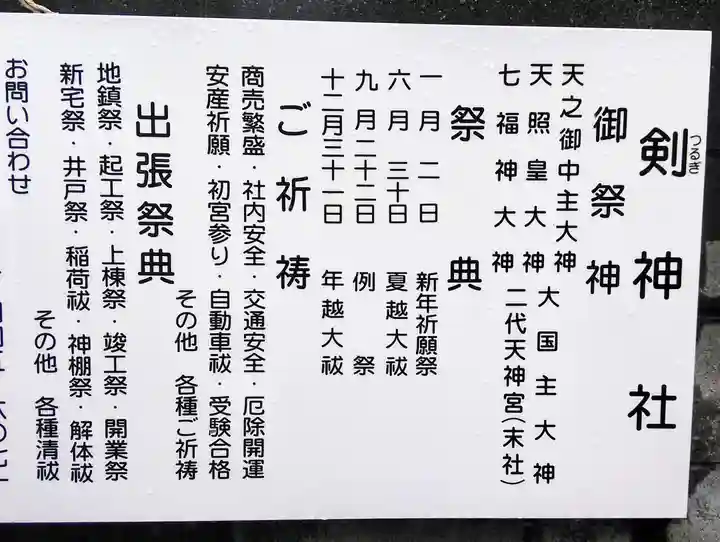 剣神社
つるぎ
御祭神
天之御中主大神
天照皇大神 大国主大神
七福神大神 二代天神宮(末社)
祭典
一月二日 新年祈願祭
六月三十日 夏越大祓
九月二十二日 例祭
十二月三十一日 年越大祓
ご祈祷
商売繁盛・社内安全・交通安全・厄除開運
安産祈願・初宮参り・自動車祓・受験合格
その他 各種ご祈祷
出張祭典
地鎮祭・起工祭・上棟祭・竣工祭・開業祭
新宅祭・井戸祭・稲荷祓・神棚祭・解体祓
その他 各種清祓
お問い合わせ